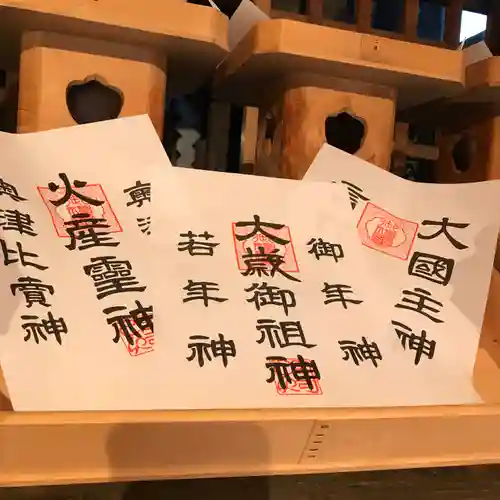 火産霊神
奥津比賣神
奥津
御年神
大歳御祖神
若年神
大國主神